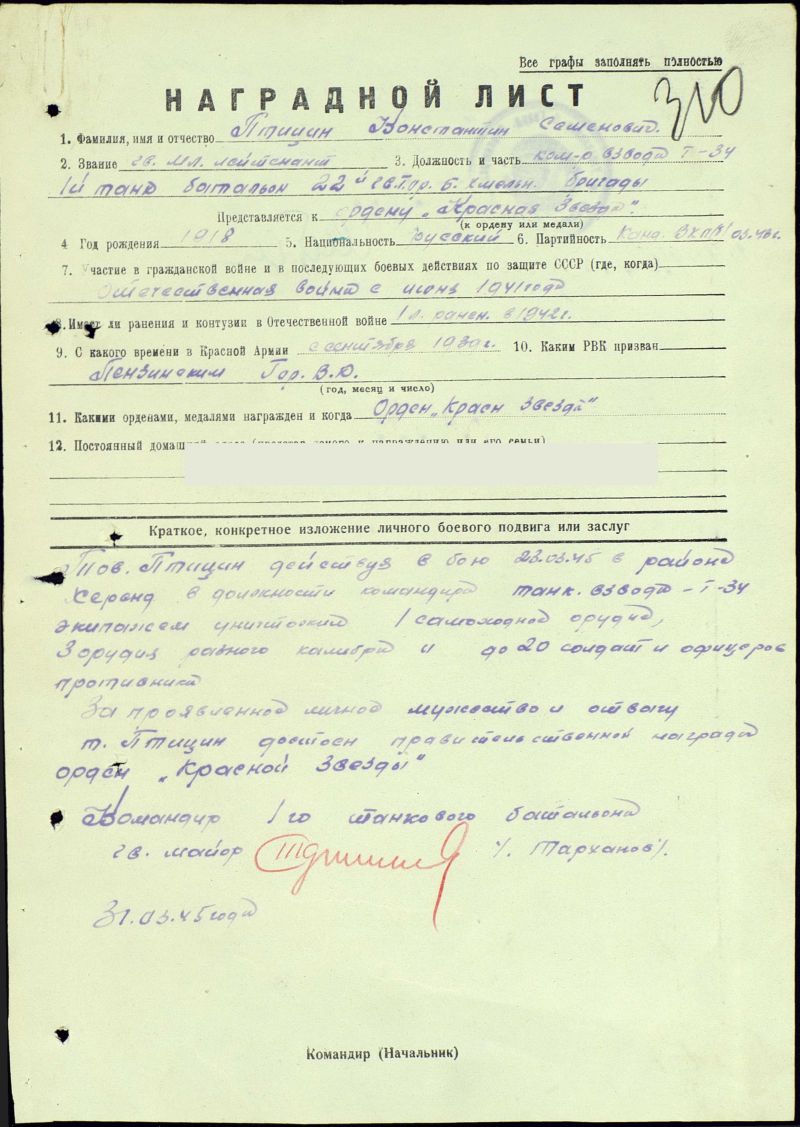 Все графы заполнять полностью
310
НАГРАДНОЙ ЛИСТ
1. Фамилия, имя и отчество Птицин Константин Семенович.
2. Звание гв. мл. лейтенант 3. Должность и часть ком-а взвода Т-34
1й танк батальон 22й гв.т.бр. Б. Хмельн. бригады
Представляется к ордену „Красная Звезда".
(к ордену или медали)
4 Год рождения 1918 5. Национальность русский 6. Партийность Канд. ВКП(б) 03.43г.
7. Участие в гражданской войне и в последующих боевых действиях по защите СССР (где, когда)
Отечественная война с июня 1941 года
8. Имеет ли ранения и контузии в Отечественной войне 1 л. ранен. в 1942г.
9. С какого времени в Красной Армии с сентября 1939г. 10. Каким РВК призван
Пензинским Гор. В.К.
(год, месяц и число)
11. Какими орденами, медалями награжден и когда Орден „Красн Звезда"
12. Постоянный домашний адрес (представляемого к награждению или его семьи)
Краткое, конкретное изложение личного боевого подвига или заслуг
Тов. Птицин действуя в бою 23.03.45 в районе
Херенд в должности командира танк. взвода - Т-34
экипажем уничтожил 1 самоходное орудие,
3 орудия разного калибра и до 20 солдат и офицеров
противника
За проявленное личное мужество и отвагу
т. Птицин достоен правительственной награды
орден „Красной Звезды"
Командир 1го танкового батальона
гв. майор /. Тарханов/.
31.03.45 года
Командир (Начальник)